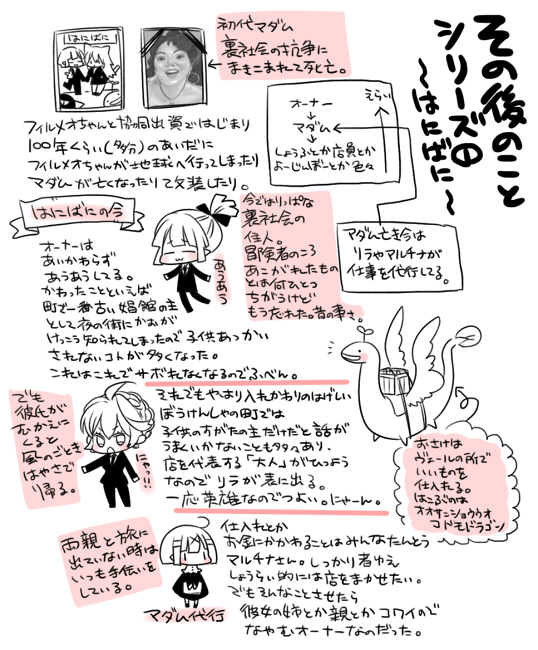 その後のこと
シリーズの
~はにばに~
はにばに
初代マダム
裏社会の抗争に
まきこまれて死亡。
オーナー
↓
マダム
↓
しょうふとか店員とか
よーじんぼーとか色々
えらい
フィルメオちゃんと協同出資ではじまり
100年くらい(多分)のあいだに
フィルメオちゃんが地球へ行ってしまったり
マダムが亡くなったりで改装したり。
マダム亡き今は
リラやマルチナが
仕事を代行してる。
はにばにの今
オーナーは
あいかわらず
あうあうしてる。
かわったことといえば
町で一番古い娼館の主
として夜の街にかおが
けっこう知られてしまったので子供あつかい
されないコトが多くなった。
これはこれでサボれなくなるのでふべん。
あうあう
今ではりっぱな
裏社会の
住人。
冒険者のころ
あこがれたもの
とは何ひとつ
ちがうけど
もう忘れた。昔の事さ。
でも
彼氏が
むかえに
くると
風のごとき
はやさで
帰る。
にゃっ!!
それでもやはり入れかわりのはげしい
ぼうけんしゃの町では
子供のすがたの主だけだと話が
うまくいかないこともタタあり、
店を代表する「大人」がひつよう
なので リラが表に出る。
一応英雄なのでつよい。にゃーん。
おさけは
ヴェールの所で
いいものを
仕入れる。
はこぶのは
オオサンショウウオ
コドモドラゴン
両親と旅に
出ていない時は
いつも手伝いを
している。
マダム代行
仕入れとか
お金にかかわることはみんなたんとう
マルチナさん。しっかり者ゆえ
しょうらい的には店をまかせたい。
でもそんなことさせたら
彼女の姉とか親とかコワイので
なやむオーナーなのだった。